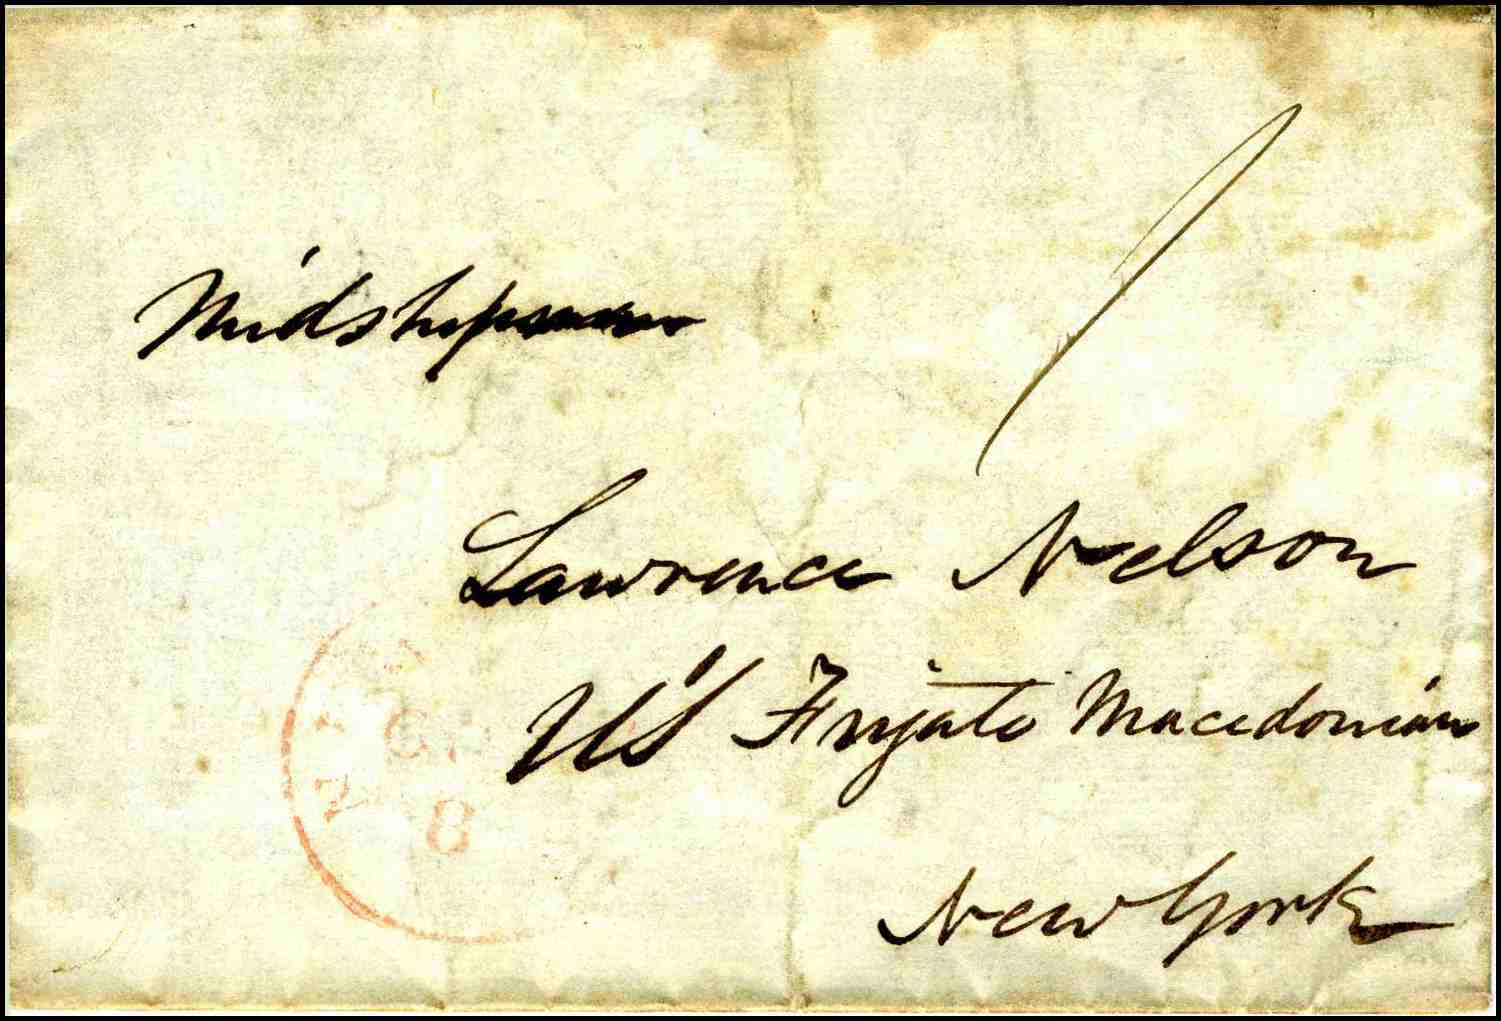 Midshipman
Lawrence Nelson
US Frigate Macedonian
New York
8